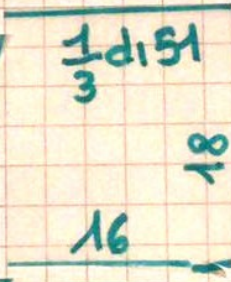 1/3 di 51
18
16